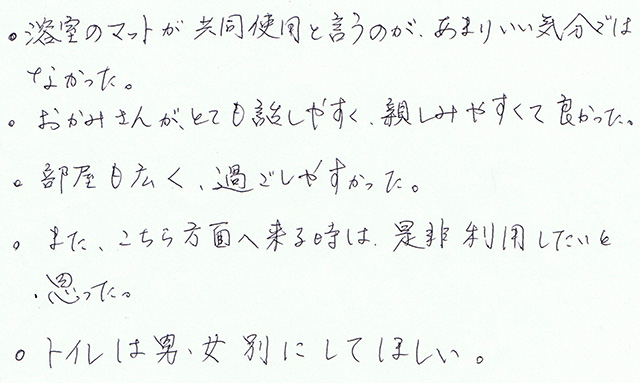 。浴室のマットが共同使用と言うのが、あまりいい気分では
なかった。
。おかみさんが、とても話しやすく、親しみやすくて良かった。
。部屋も広く、過ごしやすかった。
。また、こちら方面へ来る時は、是非利用したいと
思った。
。トイレは男、女別にしてほしい。